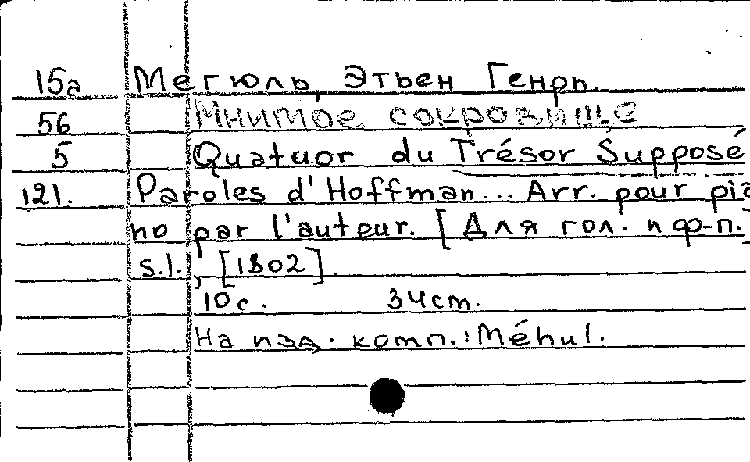 15a Мегюль, Этьен Генри.
56 Мнимое сокровище
5 Quatuor du Trésor Supposé
121. Paroles d'Hoffman... Arr. pour pia
no par l'auteur. [Для гол. и ф-п.
s.l., [1802].
10 с. 34 cm.
На изд. комп.: Méhul.